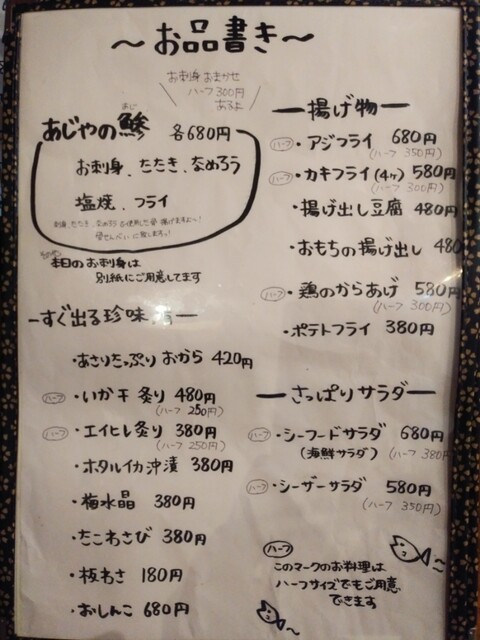 〜お品書き〜
お刺身おまかせ
ハーフ300円
あるよ
あじ
あじやの鯵 各680円
お刺身、たたき、なめろう
塩焼、フライ
本日のお刺身は
別紙にご用意してます
ーすぐ出る珍味
・あさりたっぷりおから 420円
ハーフ ・いか干炙り 480円
(ハーフ 250円)
ハーフ ・エイヒレ炙り 380円
(ハーフ 250円)
・ホタルイカ沖漬 380円
・梅水晶 380円
・たこわさび 380円
・板わさ 180円
・おしんこ 680円
ー揚げ物ー
ハーフ ・アジフライ 680円
(ハーフ 350円)
ハーフ ・カキフライ(4ヶ) 580円
(ハーフ 300円)
・揚げ出し豆腐 480円
・おもちの揚げ出し 480
ハーフ ・鶏のからあげ 580円
(ハーフ 300円)
・ポテトフライ 380円
ーさっぱりサラダー
ハーフ ・シーフードサラダ 680円
(海鮮サラダ) (ハーフ 380円
ハーフ ・シーザーサラダ 580円
(ハーフ 350円)
ハーフ
このマークのお料理は
ハーフサイズでもご用意
できます